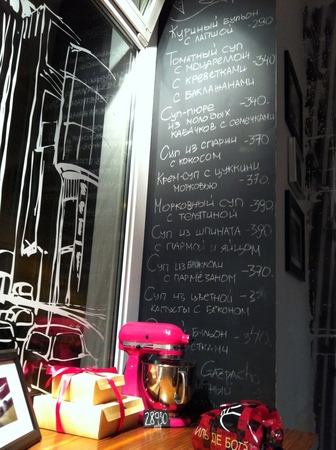 Куриный бульон
с лапшой -290
Томатный суп
с моцареллой -340
с креветками
с баклажанами
Суп-пюре -340.
из молодых
кабачков с семечками
Суп из спаржи -370
с кокосом
Крем-суп с цуккини
морковью -370.
Морковный суп -390
с телятиной
Суп из шпината -390
с пармой и яйцом
Суп из брокколи -370.
с пармезаном
Суп из цветной
капусты с беконом
Бульон -340.
Gazpacho
28950
ИЛЬ ДЕ БОТЭ